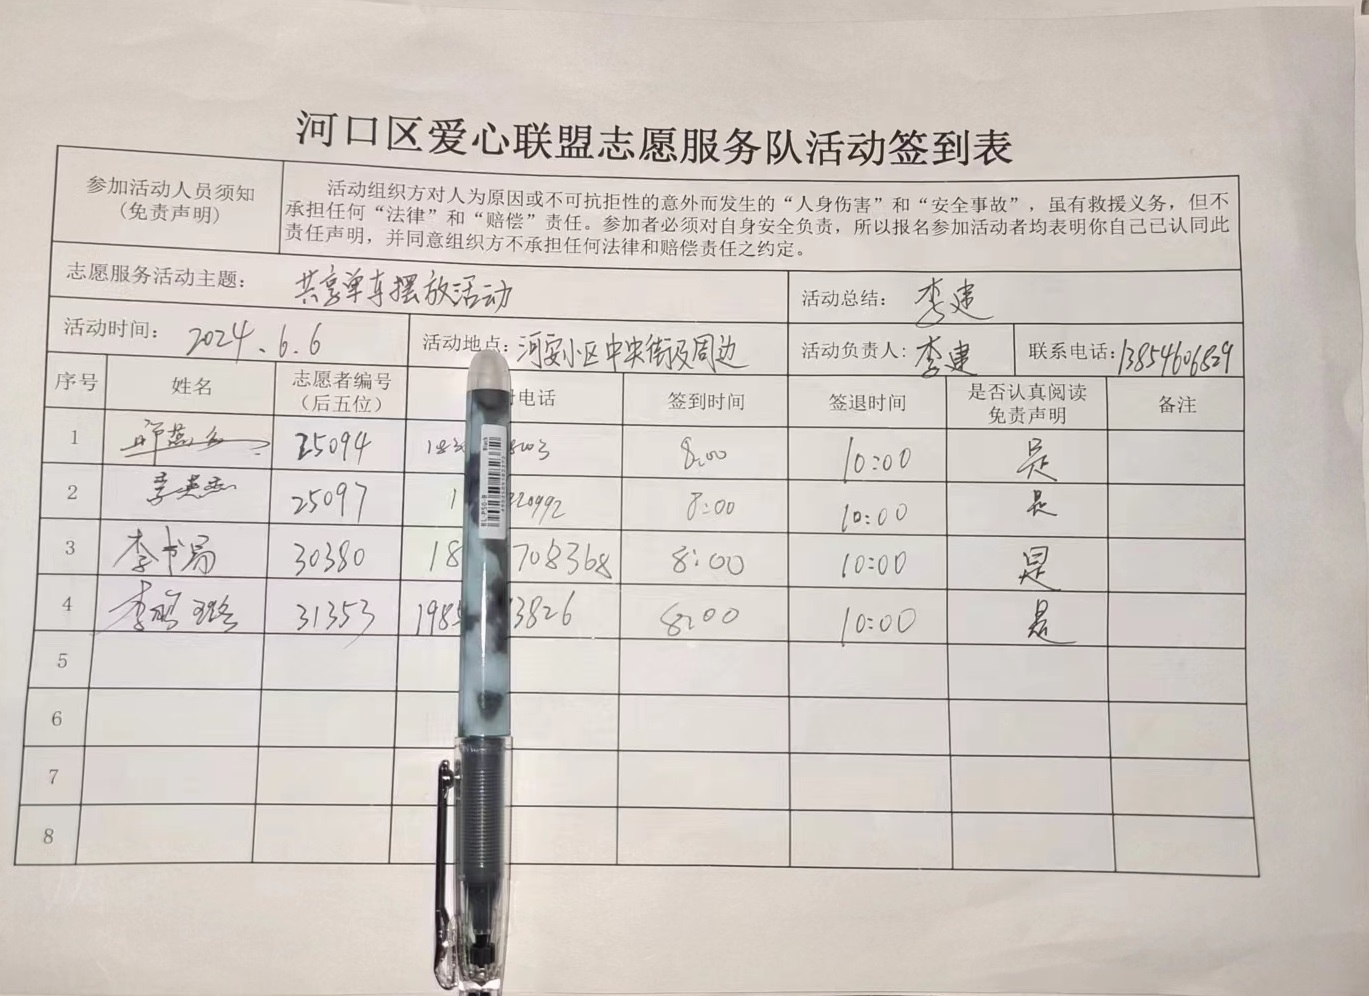 河口区爱心联盟志愿服务队活动签到表
参加活动人员须知
(免责声明)
活动组织方对人为原因或不可抗拒性的意外而发生的“人身伤害”和“安全事故”,虽有救援义务,但不
承担任何“法律”和“赔偿”责任。参加者必须对自身安全负责,所以报名参加活动者均表明你自己已认同此
责任声明,并同意组织方不承担任何法律和赔偿责任之约定。
志愿服务活动主题: 共享单车摆放活动 活动总结: 李建
活动时间: 2024.6.6 活动地点: 河安小区中央街及周边 活动负责人: 李建 联系电话: 13854606829
序号 姓名 志愿者编号(后五位) 电话 签到时间 签退时间 是否认真阅读免责声明 备注
1 25094 8:00 10:00 是
2 李英杰 25097 1 220992 8:00 10:00 是
3 李书局 30380 18 708368 8:00 10:00 是
4 31353 1985 3826 8:00 10:00 是
5
6
7
8